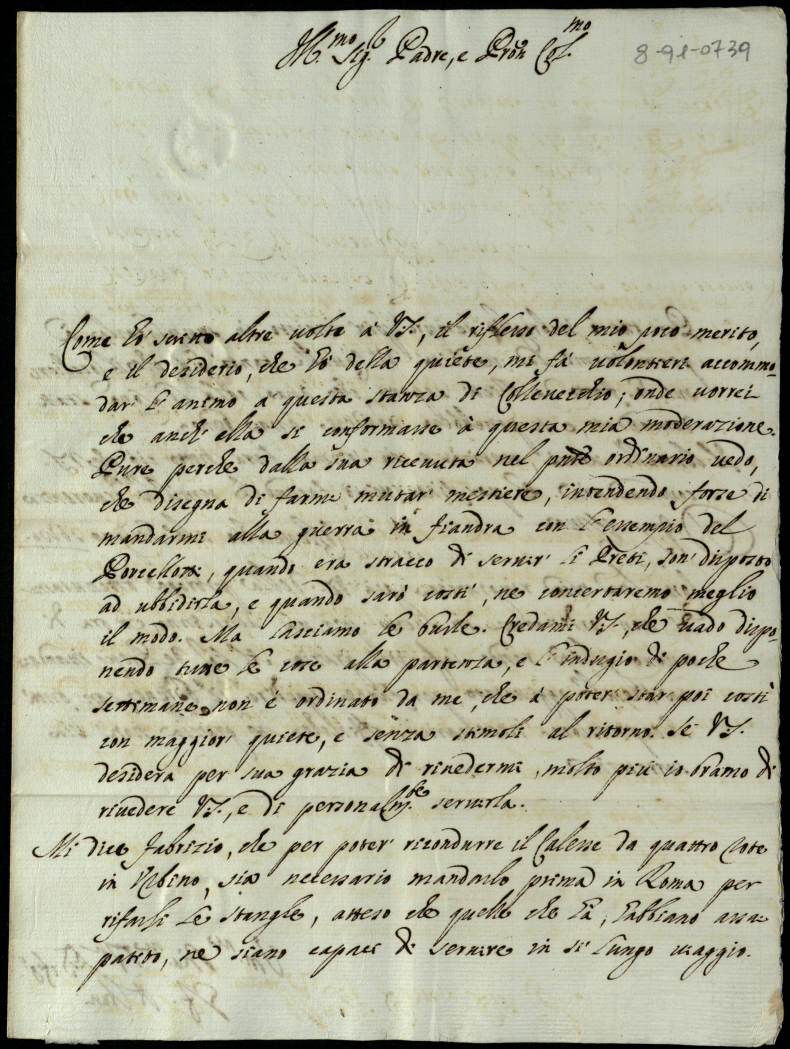 Ill.mo Sig.r Padre, e Pron Col.mo
8-91-0739
Come hò scritto altre volte à V.S., il riflesso del mio poco merito,
e il desiderio, che hò della quiete, mi fà volontieri accommo-
dar l'animo à questa stanza di Collevecchio; onde vorrei
che anch'ella si conformasse à questa mia moderazione.
Pure perche dalla sua ricevuta nel pnte ordinario vedo,
che disegna di farmi mutar mestiere, intendendo forse di
mandarmi alla guerra in fiandra con l'essempio del
Porcellotti, quando era stracco di servir li Preti, son disposto
ad ubbidirla, e quando sarò costì, ne concertaremo meglio
il modo. Ma lasciamo le burle. Credami V.S., che vado dispo-
nendo tutte le cose alla partenza, e l'indugio di poche
settimane non è ordinato da me, che à poter star poi costì
con maggior quiete, e senza stimoli al ritorno. Se V.S.
desidera per sua grazia di rivedermi, molto più io bramo di
rivedere V.S., e di personalm.te servirla.
Mi dice fabrizio, che per poter ricondurre il Calesse da quattro rote
in Urbino, sia necessario mandarlo prima in Roma per
rifarli le stangle, atteso che quelle che hà, habbiano assai
patito, ne siano capaci di servire in sì lungo viaggio.